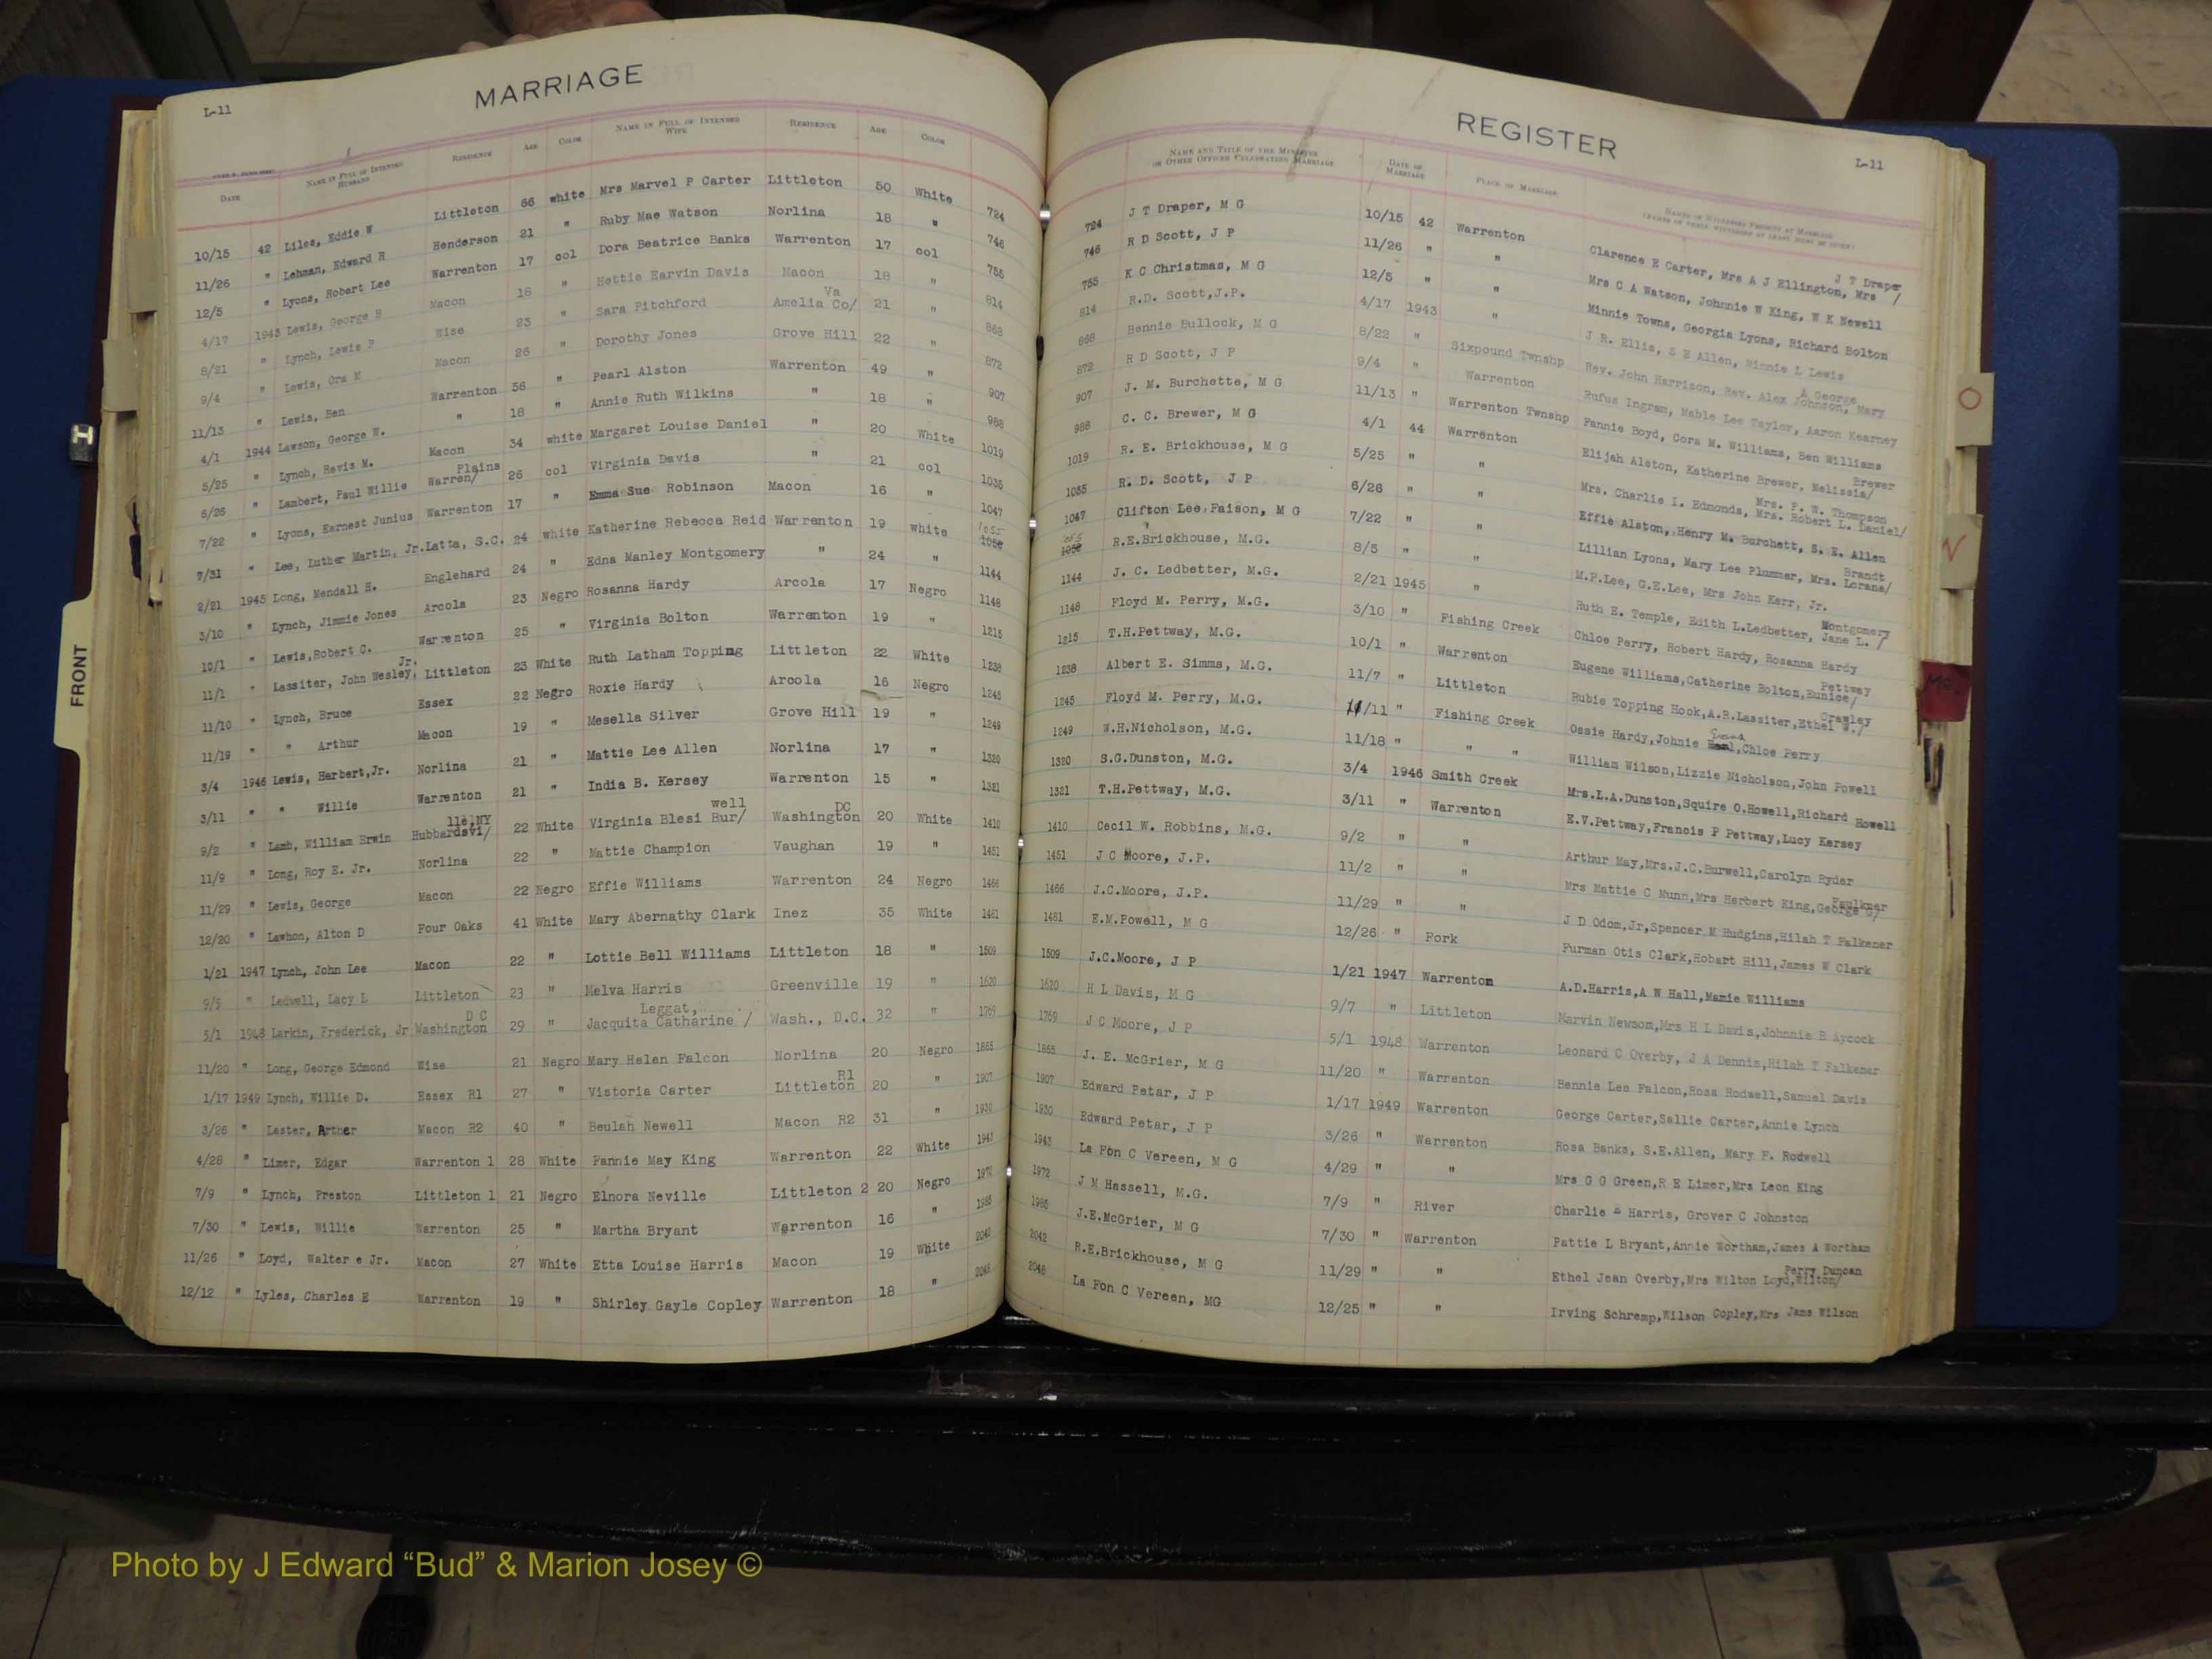 L-11
MARRIAGE
DATE
NAME IN FULL OF INTENDED HUSBAND
RESIDENCE
AGE
COLOR
NAME IN FULL OF INTENDED WIFE
RESIDENCE
AGE
COLOR
10/15 42 Liles, Eddie W Littleton 66 white Mrs Marvel P Carter Littleton 50 White 724
11/26 " Lehman, Edward R Henderson 21 " Ruby Mae Watson Norlina 18 " 746
12/5 " Lyons, Robert Lee Warrenton 17 col Dora Beatrice Banks Warrenton 17 col 755
4/17 1943 Lewis, George B Macon 18 " Hettie Earvin Davis Macon 18 " 814
8/21 " Lynch, Lewis P Wise 23 " Sara Pitchford Amelia Co/ Va 21 " 868
9/4 " Lewis, Ora M Macon 26 " Dorothy Jones Grove Hill 22 " 872
11/13 " Lewis, Ben Warrenton 56 " Pearl Alston Warrenton 49 " 907
4/1 1944 Lawson, George W. " 18 " Annie Ruth Wilkins " 18 " 988
5/25 " Lynch, Revis M. Macon 34 white Margaret Louise Daniel " 20 White 1019
6/26 " Lambert, Paul Willie Warren/ Plains 26 col Virginia Davis " 21 col 1035
7/22 " Lyons, Earnest Junius Warrenton 17 " Emma Sue Robinson Macon 16 " 1047
7/31 " Lee, Luther Martin, Jr. Latta, S.C. 24 white Katherine Rebecca Reid Warrenton 19 white 1055
2/21 1945 Long, Mendall H. Englehard 24 " Edna Manley Montgomery " 24 " 1144
3/10 " Lynch, Jimmie Jones Arcola 23 Negro Rosanna Hardy Arcola 17 Negro 1148
10/1 " Lewis,Robert C. Warrenton 25 " Virginia Bolton Warrenton 19 " 1215
11/1 " Lassiter, John Wesley, Jr. Littleton 23 White Ruth Latham Topping Littleton 22 White 1238
11/10 " Lynch, Bruce Essex 22 Negro Roxie Hardy Arcola 16 Negro 1245
11/19 " " Arthur Macon 19 " Mesella Silver Grove Hill 19 " 1249
3/4 1946 Lewis, Herbert,Jr. Norlina 21 " Mattie Lee Allen Norlina 17 " 1320
3/11 " " Willie Warrenton 21 " India B. Kersey Warrenton 15 " 1321
9/2 " Lamb, William Erwin Hubbardsvi/ lle,NY 22 White Virginia Blesi Bur/ well Washington DC 20 White 1410
11/9 " Long, Roy E. Jr. Norlina 22 " Mattie Champion Vaughan 19 " 1451
11/29 " Lewis, George Macon 22 Negro Effie Williams Warrenton 24 Negro 1466
12/20 " Lawhon, Alton D Four Oaks 41 White Mary Abernathy Clark Inez 35 White 1481
1/21 1947 Lynch, John Lee Macon 22 " Lottie Bell Williams Littleton 18 " 1509
9/5 " Ledwell, Lacy L Littleton 23 " Melva Harris Greenville 19 " 1620
5/1 1948 Larkin, Frederick, Jr Washington D C 29 " Jacquita Catharine / Leggat, Wash., D.C. 32 " 1769
11/20 " Long, George Edmond Wise 21 Negro Mary Helen Falcon Norlina 20 Negro 1865
1/17 1949 Lynch, Willie D. Essex R1 27 " Vistoria Carter Littleton R1 20 " 1907
3/26 " Laster, Arther Macon R2 40 " Beulah Newell Macon R2 31 " 1930
4/28 " Limer, Edgar Warrenton 1 28 White Fannie May King Warrenton 22 White 1943
7/9 " Lynch, Preston Littleton 1 21 Negro Elnora Neville Littleton 2 20 Negro 1972
7/30 " Lewis, Willie Warrenton 25 " Martha Bryant Warrenton 16 " 1985
11/26 " Loyd, Walter e Jr. Macon 27 White Etta Louise Harris Macon 19 White 2042
12/12 " Lyles, Charles E Warrenton 19 " Shirley Gayle Copley Warrenton 18 " 2048
REGISTER
L-11
NAME AND TITLE OF THE MINISTER OR OTHER OFFICER CELEBRATING MARRIAGE
DATE OF MARRIAGE
PLACE OF MARRIAGE
NAMES OF WITNESSES PRESENT AT MARRIAGE
724 J T Draper, M G 10/15 42 Warrenton Clarence E Carter, Mrs A J Ellington, Mrs / J T Draper
746 R D Scott, J P 11/26 " " Mrs C A Watson, Johnnie W King, W K Newell
755 K C Christmas, M G 12/5 " " Minnie Towns, Georgia Lyons, Richard Bolton
814 R.D. Scott,J.P. 4/17 1943 " J R. Ellis, S E Allen, Minnie L Lewis
868 Bennie Bullock, M G 8/22 " Sixpound Twnshp Rev. John Harrison, Rev. Alex Johnson, Mary A George
872 R D Scott, J P 9/4 " Warrenton Rufus Ingram, Mable Lee Taylor, Aaron Kearney
907 J. M. Burchette, M G 11/13 " Warrenton Twnshp Fannie Boyd, Cora M. Williams, Ben Williams
988 C. C. Brewer, M G 4/1 44 Warrenton Elijah Alston, Katherine Brewer, Melissia/ Brewer
1019 R. E. Brickhouse, M G 5/25 " " Mrs. Charlie I. Edmonds, Mrs. Robert L. Daniel/ Mrs. P. W. Thompson
1035 R. D. Scott, J P 6/26 " " Effie Alston, Henry M. Burchett, S. E. Allen
1047 Clifton Lee Faison, M G 7/22 " " Lillian Lyons, Mary Lee Plummer, Mrs. Lorane/ Brandt
1055 R.E.Brickhouse, M.G. 8/5 " " M.P.Lee, G.E.Lee, Mrs John Kerr, Jr.
1144 J. C. Ledbetter, M.G. 2/21 1945 " Ruth E. Temple, Edith L.Ledbetter, Jane L. / Montgomery
1148 Floyd M. Perry, M.G. 3/10 " Fishing Creek Chloe Perry, Robert Hardy, Rosanna Hardy
1215 T.H.Pettway, M.G. 10/1 " Warrenton Eugene Williams,Catherine Bolton,Eunice/ Pettway
1238 Albert E. Simms, M.G. 11/7 " Littleton Rubie Topping Hook,A.R.Lassiter,Ethel W./ Crawley
1245 Floyd M. Perry, M.G. 11/11 " Fishing Creek Ossie Hardy,Johnie ,Chloe Perry
1249 W.H.Nicholson, M.G. 11/18 " " " William Wilson,Lizzie Nicholson,John Powell
1320 S.G.Dunston, M.G. 3/4 1946 Smith Creek Mrs.L.A.Dunston,Squire O.Howell,Richard Howell
1321 T.H.Pettway, M.G. 3/11 " Warrenton E.V.Pettway,Francis P Pettway,Lucy Kersey
1410 Cecil W. Robbins, M.G. 9/2 " " Arthur May,Mrs.J.C.Burwell,Carolyn Ryder
1451 J C Moore, J.P. 11/2 " " Mrs Mattie C Nunn,Mrs Herbert King,George G/ Faulkner
1466 J.C.Moore, J.P. 11/29 " " J D Odom,Jr,Spencer M Hudgins,Hilah T Falkener
1481 E.M.Powell, M G 12/26 " Fork Furman Otis Clark,Hobart Hill,James W Clark
1509 J.C.Moore, J P 1/21 1947 Warrenton A.D.Harris,A W Hall,Mamie Williams
1620 H L Davis, M G 9/7 " Littleton Marvin Newsom,Mrs H L Davis,Johnnie B Aycock
1769 J C Moore, J P 5/1 1948 Warrenton Leonard C Overby, J A Dennis,Hilah T Falkener
1865 J. E. McGrier, M G 11/20 " Warrenton Bennie Lee Falcon,Rosa Rodwell,Samuel Davis
1907 Edward Petar, J P 1/17 1949 Warrenton George Carter,Sallie Carter,Annie Lynch
1930 Edward Petar, J P 3/26 " Warrenton Rosa Banks, S.E.Allen, Mary F. Rodwell
1943 La Fon C Vereen, M G 4/29 " " Mrs G G Green,R E Limer,Mrs Leon King
1972 J M Hassell, M.G. 7/9 " River Charlie Harris, Grover C Johnston
1985 J.E.McGrier, M G 7/30 " Warrenton Pattie L Bryant,Annie Wortham,James A Wortham
2042 R.E.Brickhouse, M G 11/29 " " Ethel Jean Overby,Mrs Wilton Loyd,Wilton/ Perry Duncan
2048 La Fon C Vereen, MG 12/25 " " Irving Schremp,Wilson Copley,Mrs Jams Wilson
FRONT
H
O
N
Mc.
Photo by J Edward “Bud” & Marion Josey ©